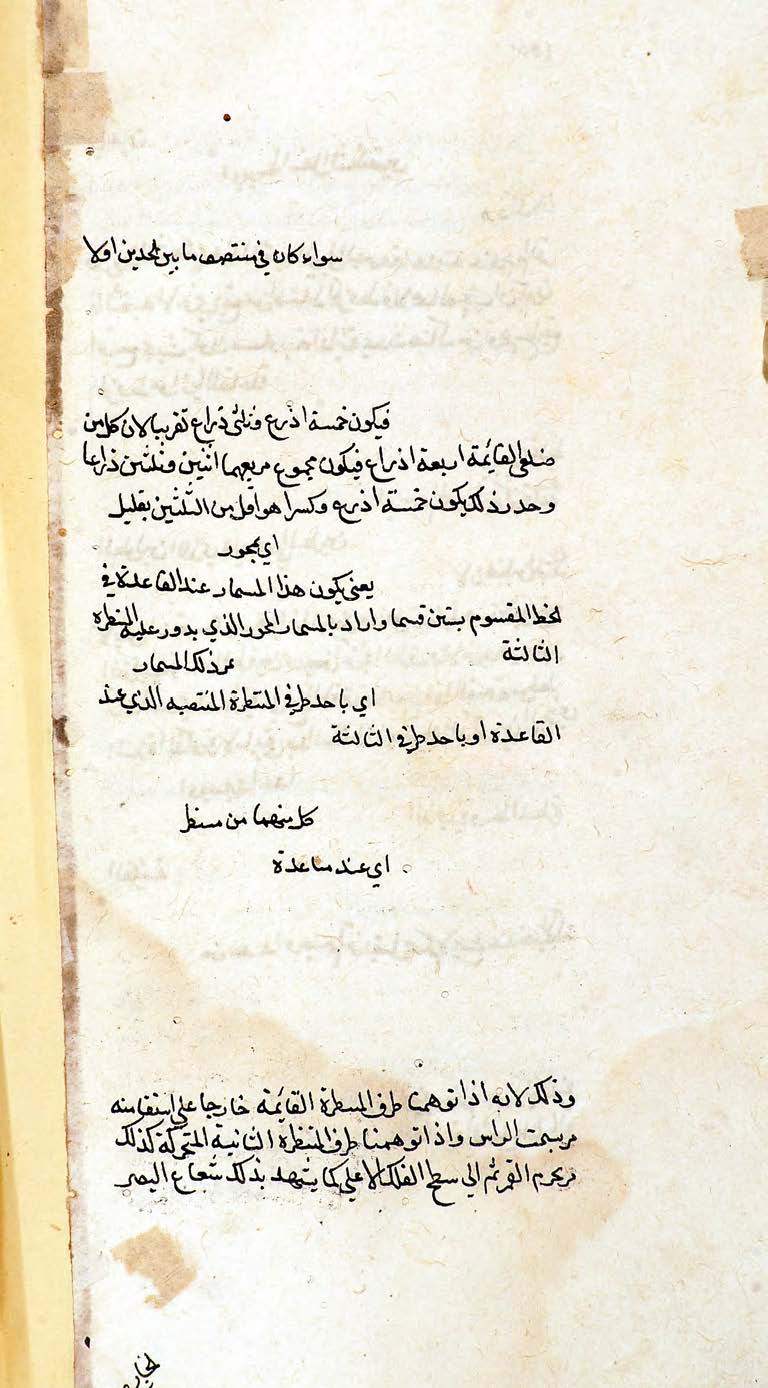 سواء كان في منتصف ما بين الحدين اولا
فيكون خمسة اذرع وثلثي ذراع تقريبا لان كل من
ضلعي القايمة اربعة اذراع فيكون مجموع مربعهما اثنين وثلثين ذراعا
وجذر ذلك يكون خمسة اذرع وكسرا هو اقل من الثلثين بقليل
اي بمحور
يعني يكون هذا المسمار عند القاعدة في
الخط المقسوم بستين قسما واراد بالمسمار المحور الذي يدور عليه المنطرة
الثالثة
عن ذلك المسمار
اي باحد طرفي المنطرة المنتصبه الذي عند
القاعدة او باحد طرفي الثالثة
كل منهما من مسطر
اي عند مساعدة
وذلك لانه اذا توهمنا طرف المسطرة القايمة خارجا على استقامته
مر بسمت الراس واذا توهمنا طرف المنظرة الثانية المتحركة كذلك
مر بجرم القمر ثم الي سطح الفلك الاعلي كما يشهد بذلك شعاع البصر